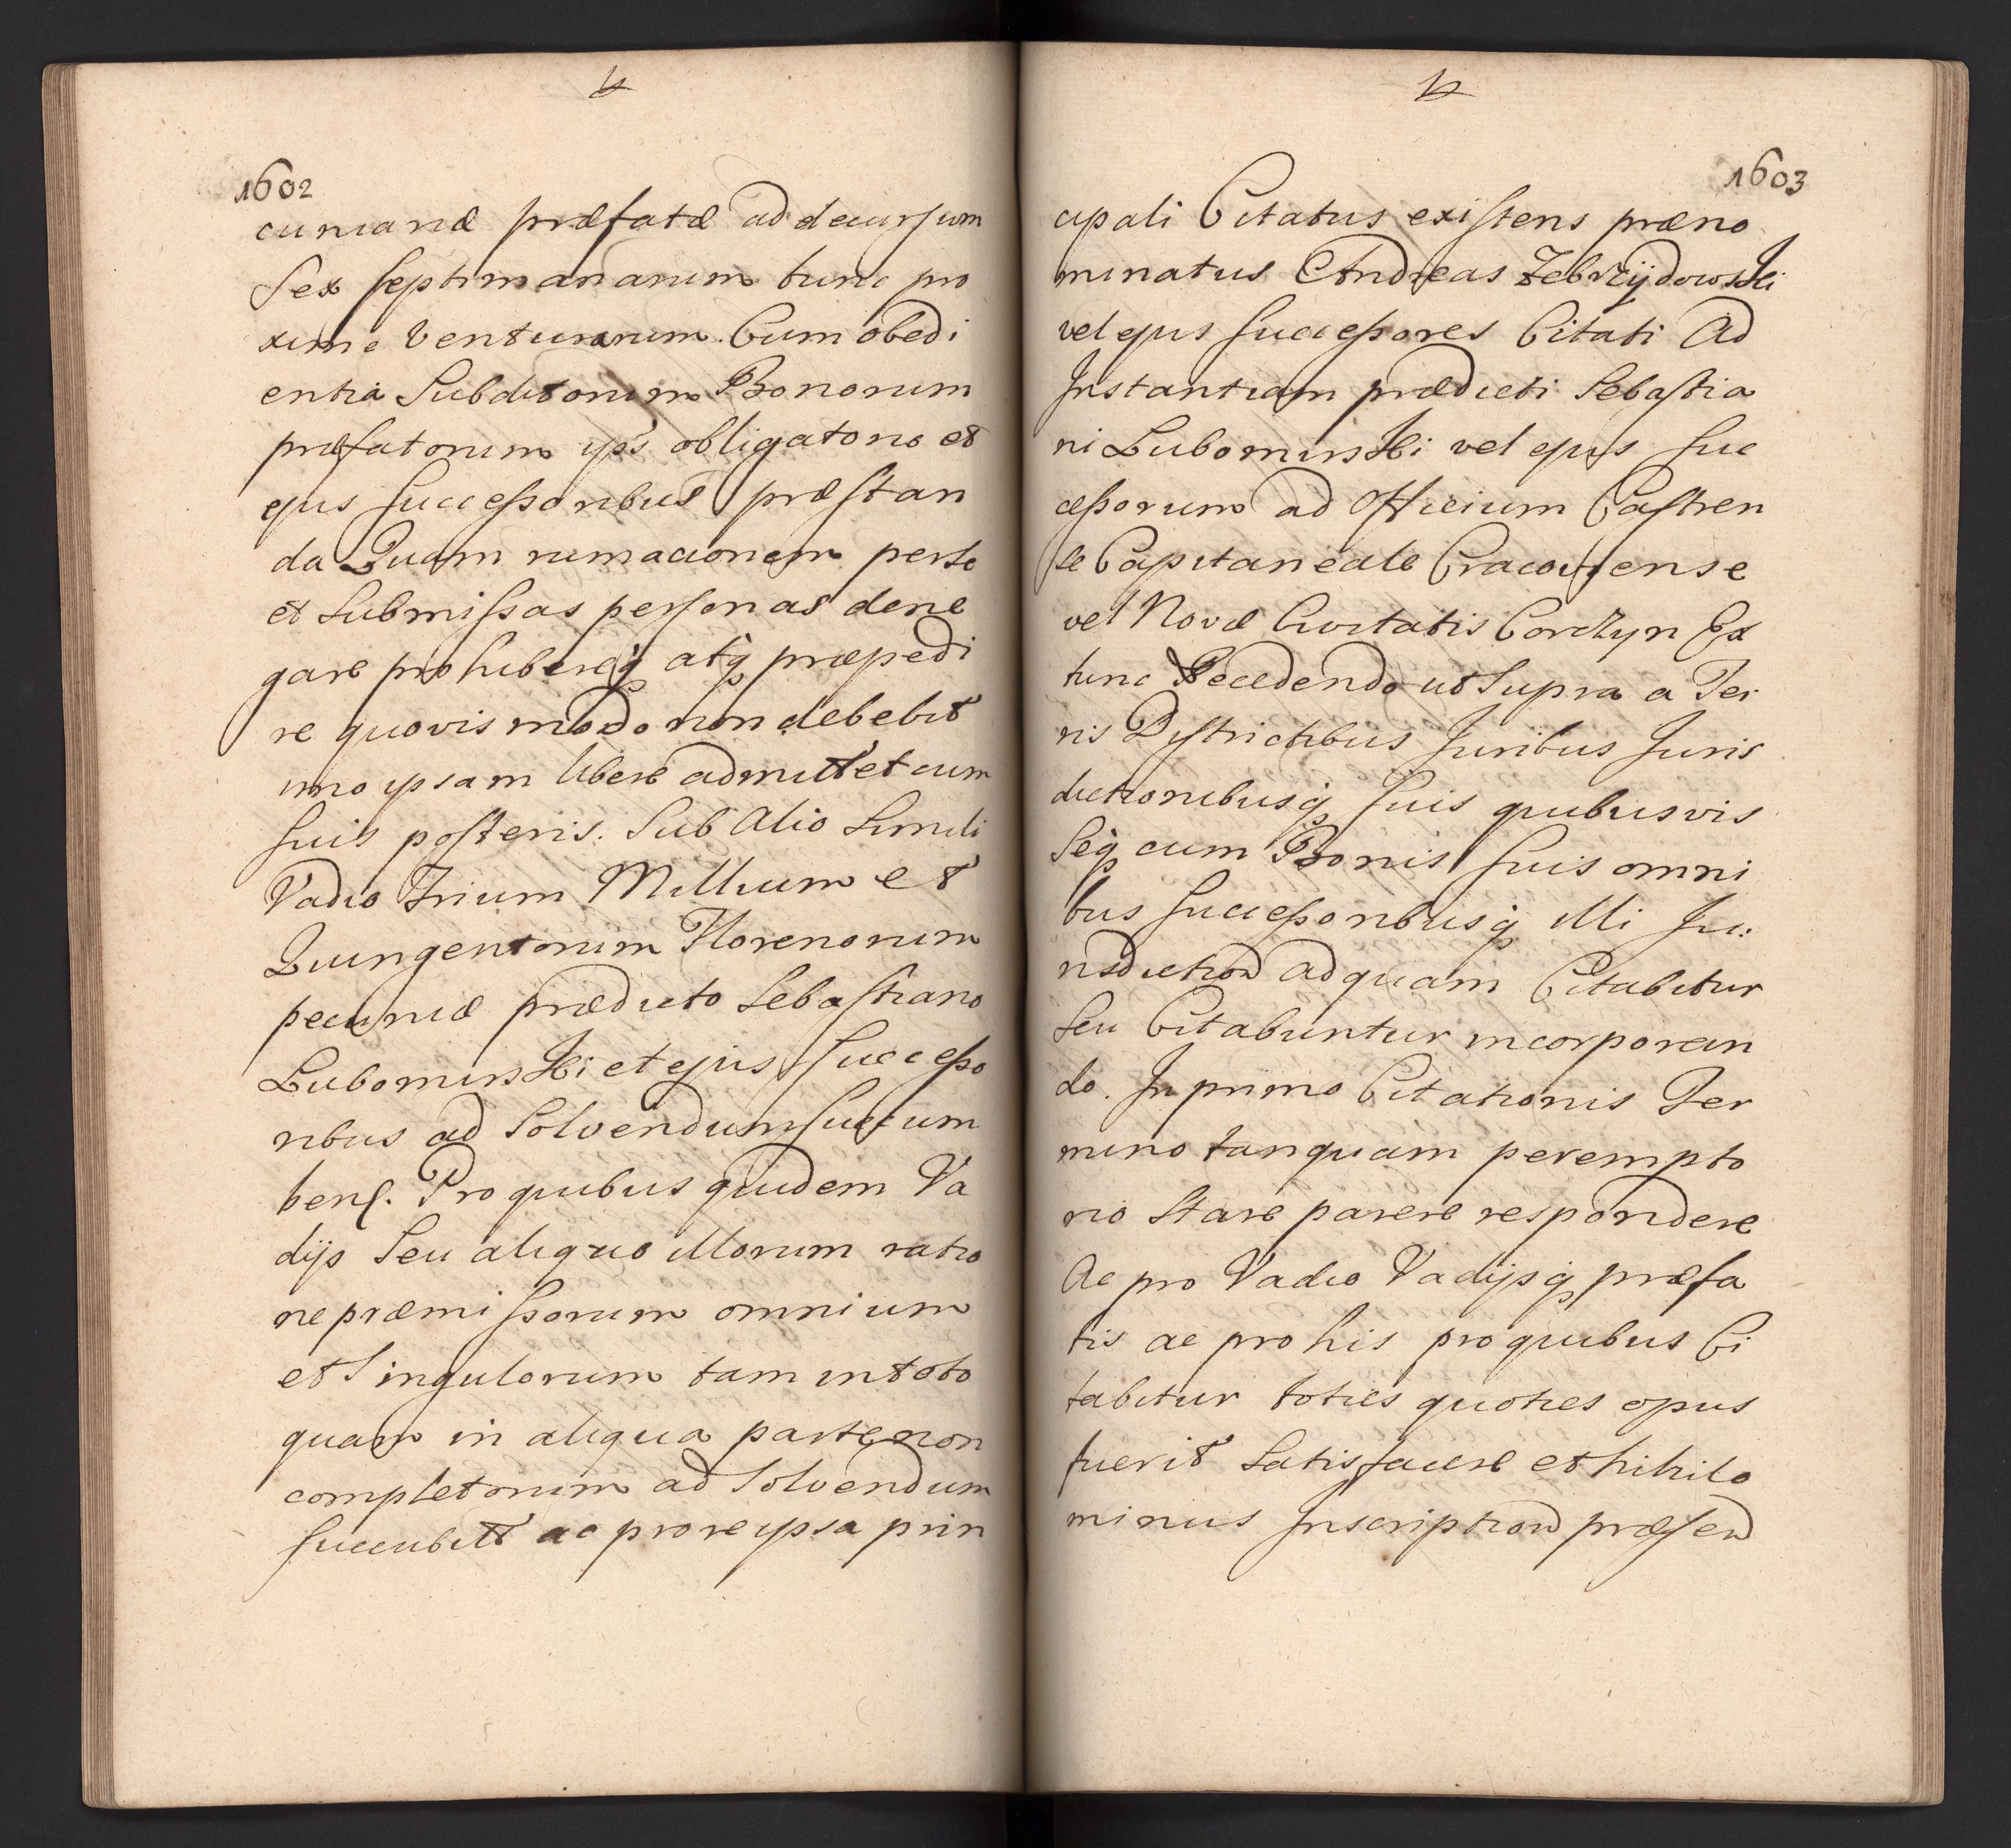 1602
cuniariæ præfatæ ad decursum
Sex septimanarum tunc pro
xime Venturarum. Cum obedi
entia Subditorum Bonorum
præfatorum ipsi obligatorio et
ejus Successoribus præstan
da Quam rumacionem per se
et submissas personas dene
gare prohibereq atq præpedi
re quovis modo non debebit
imo ipsam libere admittet cum
suis posteris. Sub Alio Simili
Vadio Trium Millium et
Quingentorum Florenorum
pecuniæ prædicto Sebastiano
Lubomirski et ejus Successo
ribus ad Solvendum succum
ben. Pro quibus quidem Va
dijs Seu aliquo illorum ratio
ne præmissorum omnium
et Singulorum tam in toto
quam in aliqua parte non
completorum ad Solvendum
succubitt ac pro re ipsa prin
1603
cipali Citatus existens præno
minatus Andreas Zebrzÿdowski
vel ejus Successores Citati Ad
Instantiam prædicti Sebastia
ni Lubomirski vel ejus Suc
cessorum ad Officium Castren
se Capitaneale Cracoviense
vel Novæ Civitatis Corczyn Ex
tunc Recedendo ut Supra a Ter
ris Districtibus Juribus Juris
dictionibusq suis quibusvis
Seq cum Bonis suis omni
bus Successoribusq illi Ju:
risdiction ad quam Citabitur
Seu Citabuntur incorporan
do. In primo Citationis Ter
mino tanquam perempto
rio Stare parere respondere
Ac pro Vadio Vadijsq præfa
tis ac pro his pro quibus Ci
tabitur toties quoties opus
fuerit Satisfacere et nihilo
minus Inscription præsen